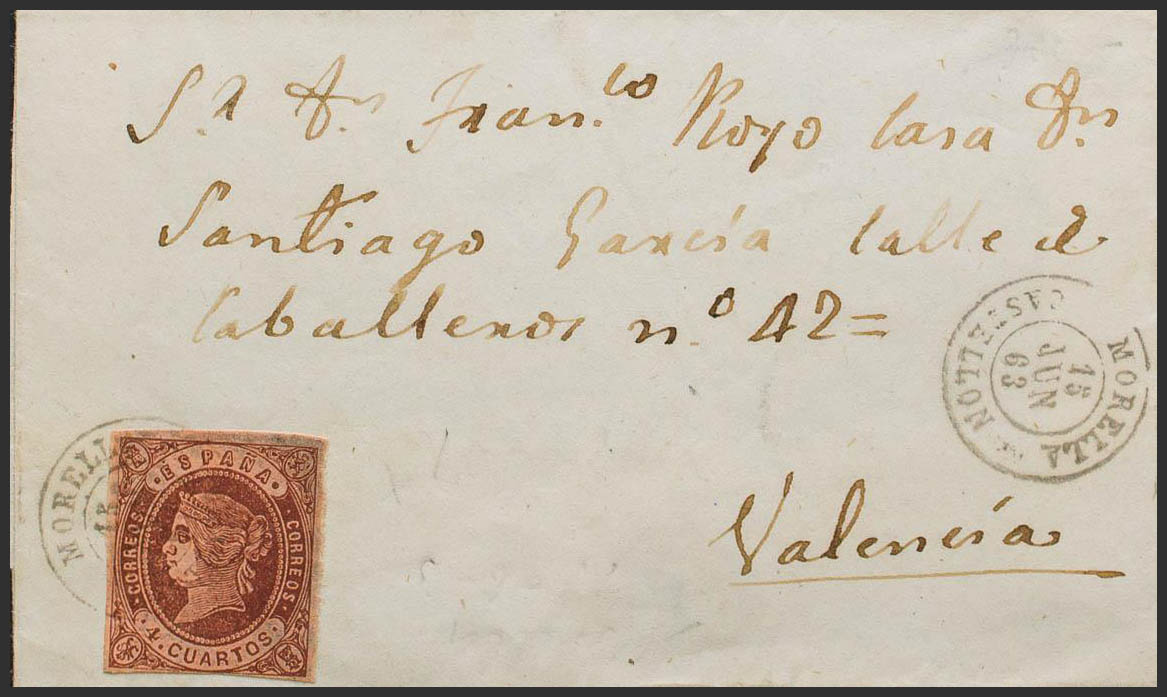 Sr Dn Franco Royo Casa Dn
Santiago García Calle de
Caballeros no 42=
Valencia
MORELLA
CASTELLON
15
JUN
63
MORELL
15
ESPAÑA
CORREOS
CORREOS
4 CUARTOS